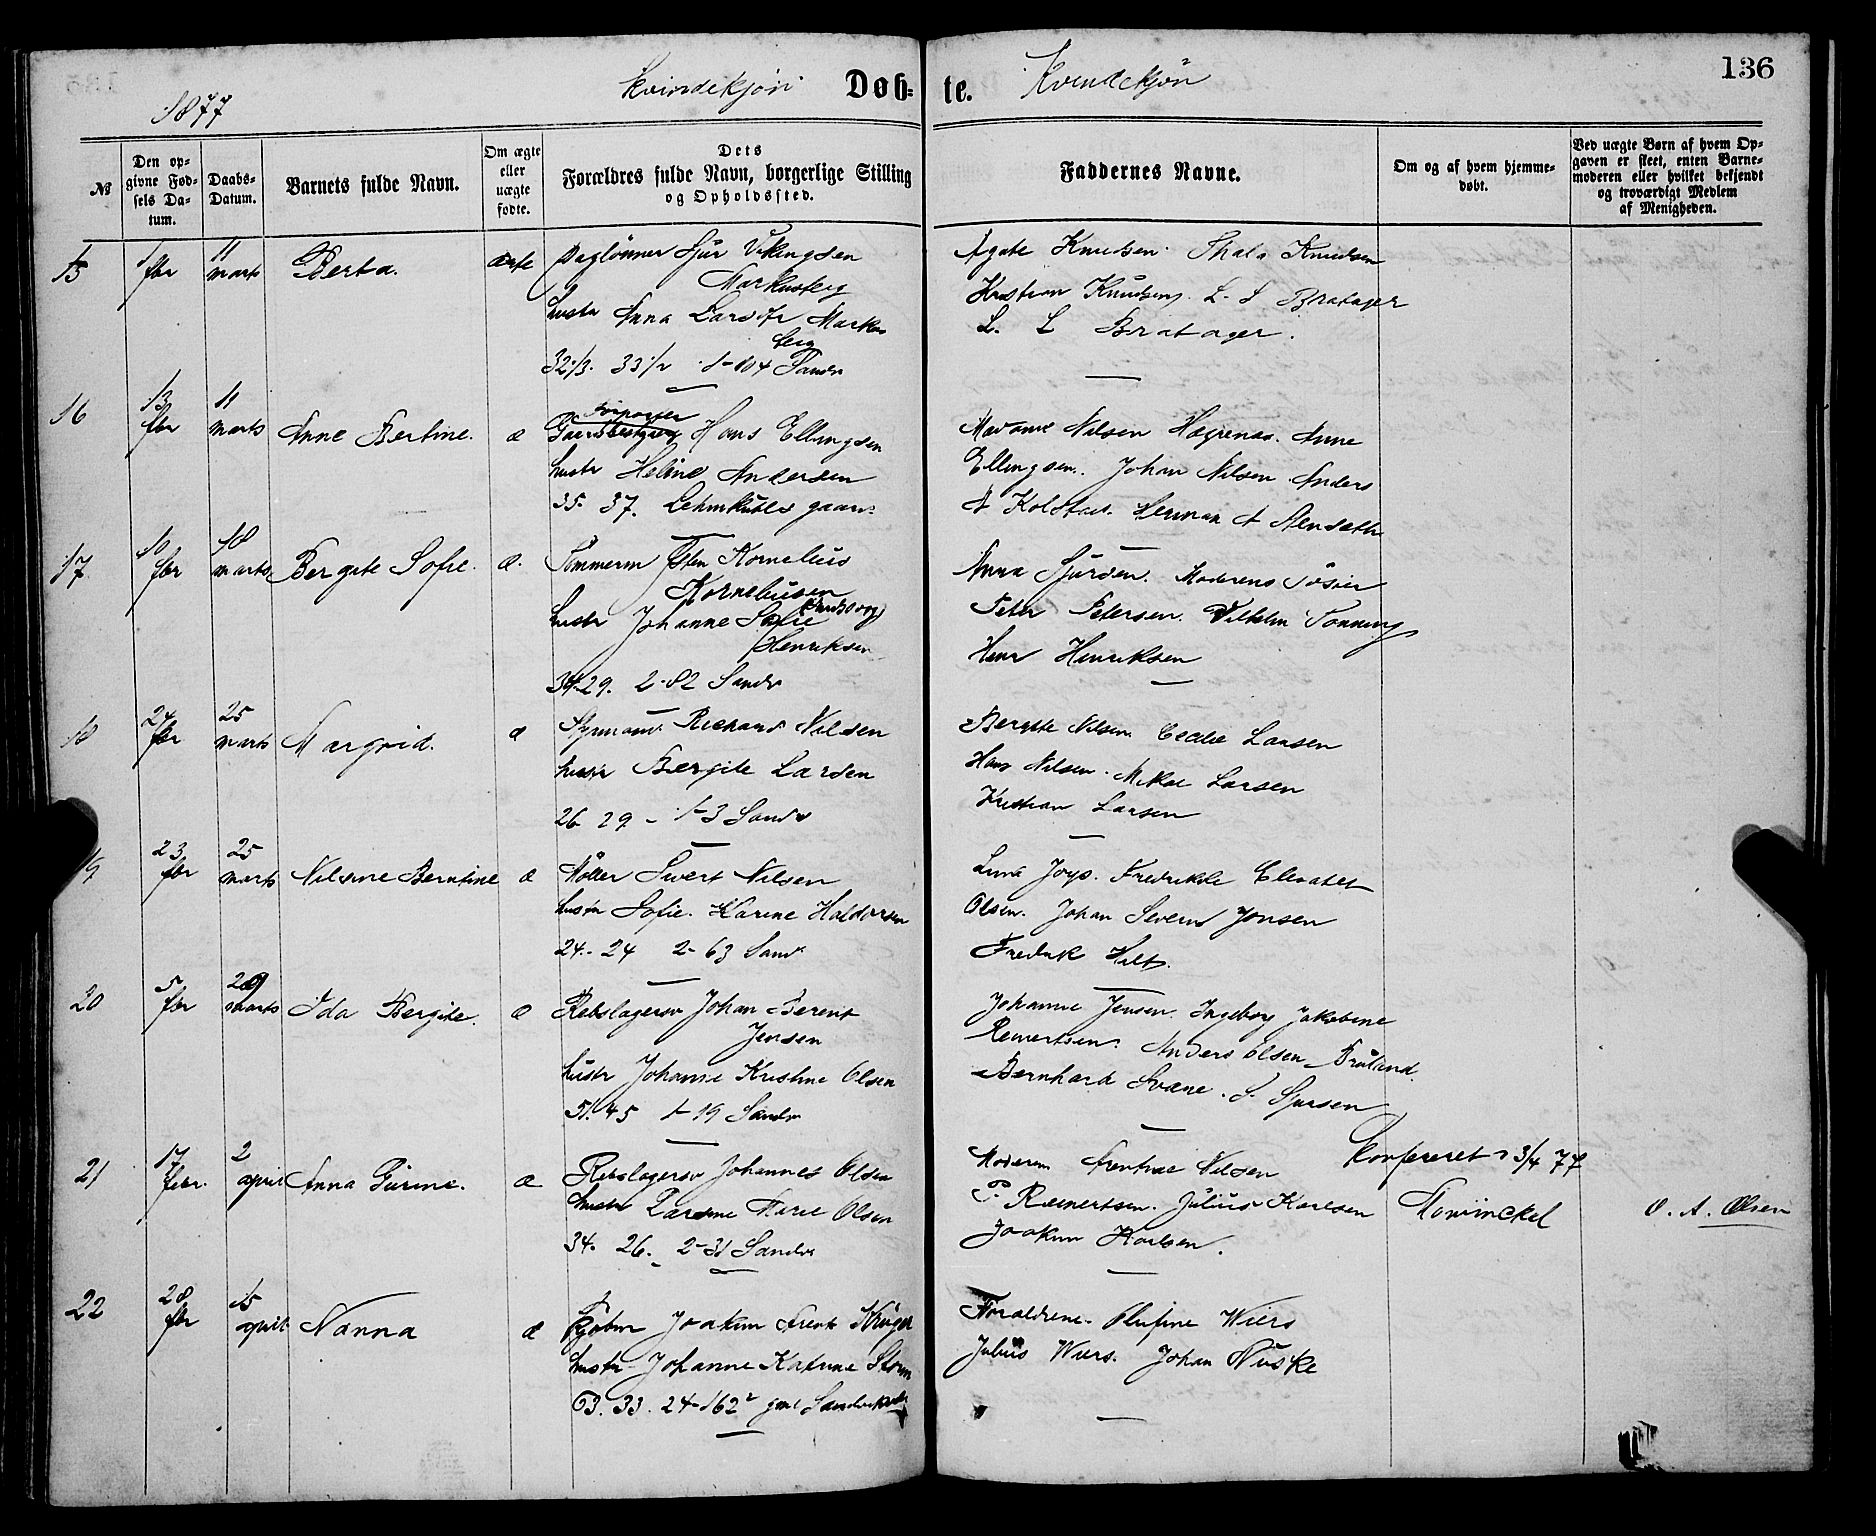 136
1877
Kvindekjön Døb- te. Kvindekjön
№
Den opgivne Fødsels Datum.
Daabs-Datum.
Barnets fulde Navn.
Om ægte eller uægte fødte.
Dets Forældres fulde Navn, borgerlige Stilling og Opholdssted.
Faddernes Navne.
Om og af hvem hjemmedøbt.
Ved uægte Børn af hvem Opgaven er skeet, enten Barnemoderen eller hvilket bekjendt og troværdigt Medlem af Menigheden.
15 1 fbr 11 marts Berta. ægte Daglönner Sjur Vikingsen
Markusteig
hustr Anna Larsdtr Markus
teig
32 1/3. 33 1/2 1-104 Sandv
Agate Knudsen. Thala Knudsen
Kristian Knudsen. L. L Bratager
L. L Bratager.
16 13 fbr 11 marts Anne Bertine. æ
Gaardsbestyrer Hans Ellingsen
hustr Heline Andersen
35. 37. Lehmkuhls gaard.
Madame Nilsen Hegrenæs. Anne
Ellingsen. Johan Nilsen Anders
A Kolstad. Herman A
17 10 fbr 18 marts Bergite Sofie. æ. Tömmerm Sten Kornelius
Korneliusen
hustr Johanne Sofie
Henriksen
34. 29. 2-82 Sandv
Anna Sjursen. Moderens Söster
Peter Petersen. Vilhelm Tonning
Henr Henriksen
18 24 fbr 25 marts Margrid. æ Styrmand Richard Nilsen
hustr Bergite Larsen
26 29 - 1-3 Sandv
Bergitte Nilsen. Cecilie Larsen
Hans Nilsen. Mikal Larsen
Kristian Larsen
19 23 fbr 25 marts Nilsine Berntine æ Möller Sivert Nilsen
hustr Sofie Karine Haldorsen
24.- 24 2-63 Sandv
Lina Joys. Fredrikke Elisabet
Olsen. Johan Severin Jonsen
Fredrik Hilt.
20 5 fbr 29 marts Ida Bergite. æ Rebslagersv Johan Berent
Jensen
hustr Johanne Kristine Olsen
51. 45 1-19 Sandv
Johanne Jensen. Ingeborg Jakobine
Reinertsen. Anders Olsen Bruland.
Bernhard Svane. S. Sjursen
21 17 febr. 2 april Anna Gurine. æ Rebslagersv Johannes Olsen
hustr Larsine Marie Olsen
34. 26. 2-31 Sandv
Moderen Nilsen
P. Reinertsen. Julius Karlsen
Joakim Karlsen.
Konfereret 3/4 77
Mowinckel
O. A. Olsen
22 28 fbr 15 april Nanna æ Kjöbm Joakim Frerk Krüger
hustr Johanne Katrine Storm
63. 33. 24-162
Forældrene. Olufine Wiers
Julius Wiers. Johan Nuske